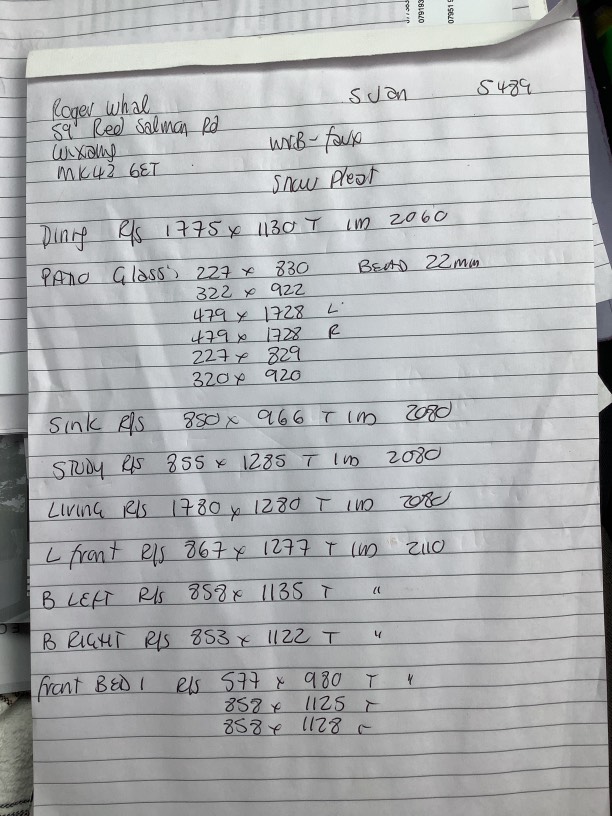 5 Jan 5489
Roger Whal
59 Red Salmon Rd
Wixams WVB - faux
MK42 6ET Snow Pleat
Dining R/S 1775 x 1130 T 1m 2060
PATIO Glass: 227 x 830 BEAD 22mm
322 x 922
479 x 1728 L
479 x 1728 R
227 x 829
320 x 920
Sink R/S 850 x 966 T 1m 2080
STUDY R/S 855 x 1285 T 1m 2080
LIVING R/S 1780 x 1280 T 1m 2080
L front R/S 867 x 1277 T 1m 2110
B LEFT R/S 858 x 1135 T "
B RIGHT R/S 853 x 1122 T "
front BED 1 R/S 577 x 980 T "
858 x 1125 T
858 x 1128 T